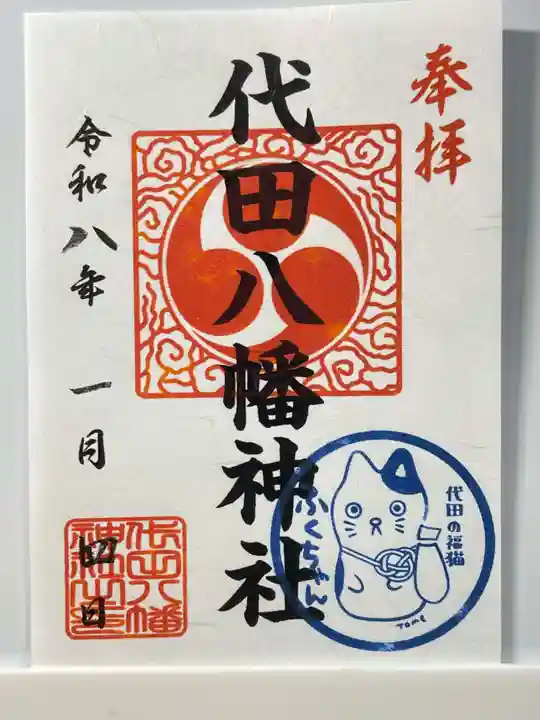 奉拝
代田八幡神社
令和八年 一月
四日
代田八幡
神社
代田の福猫
ふくちゃん
TOME